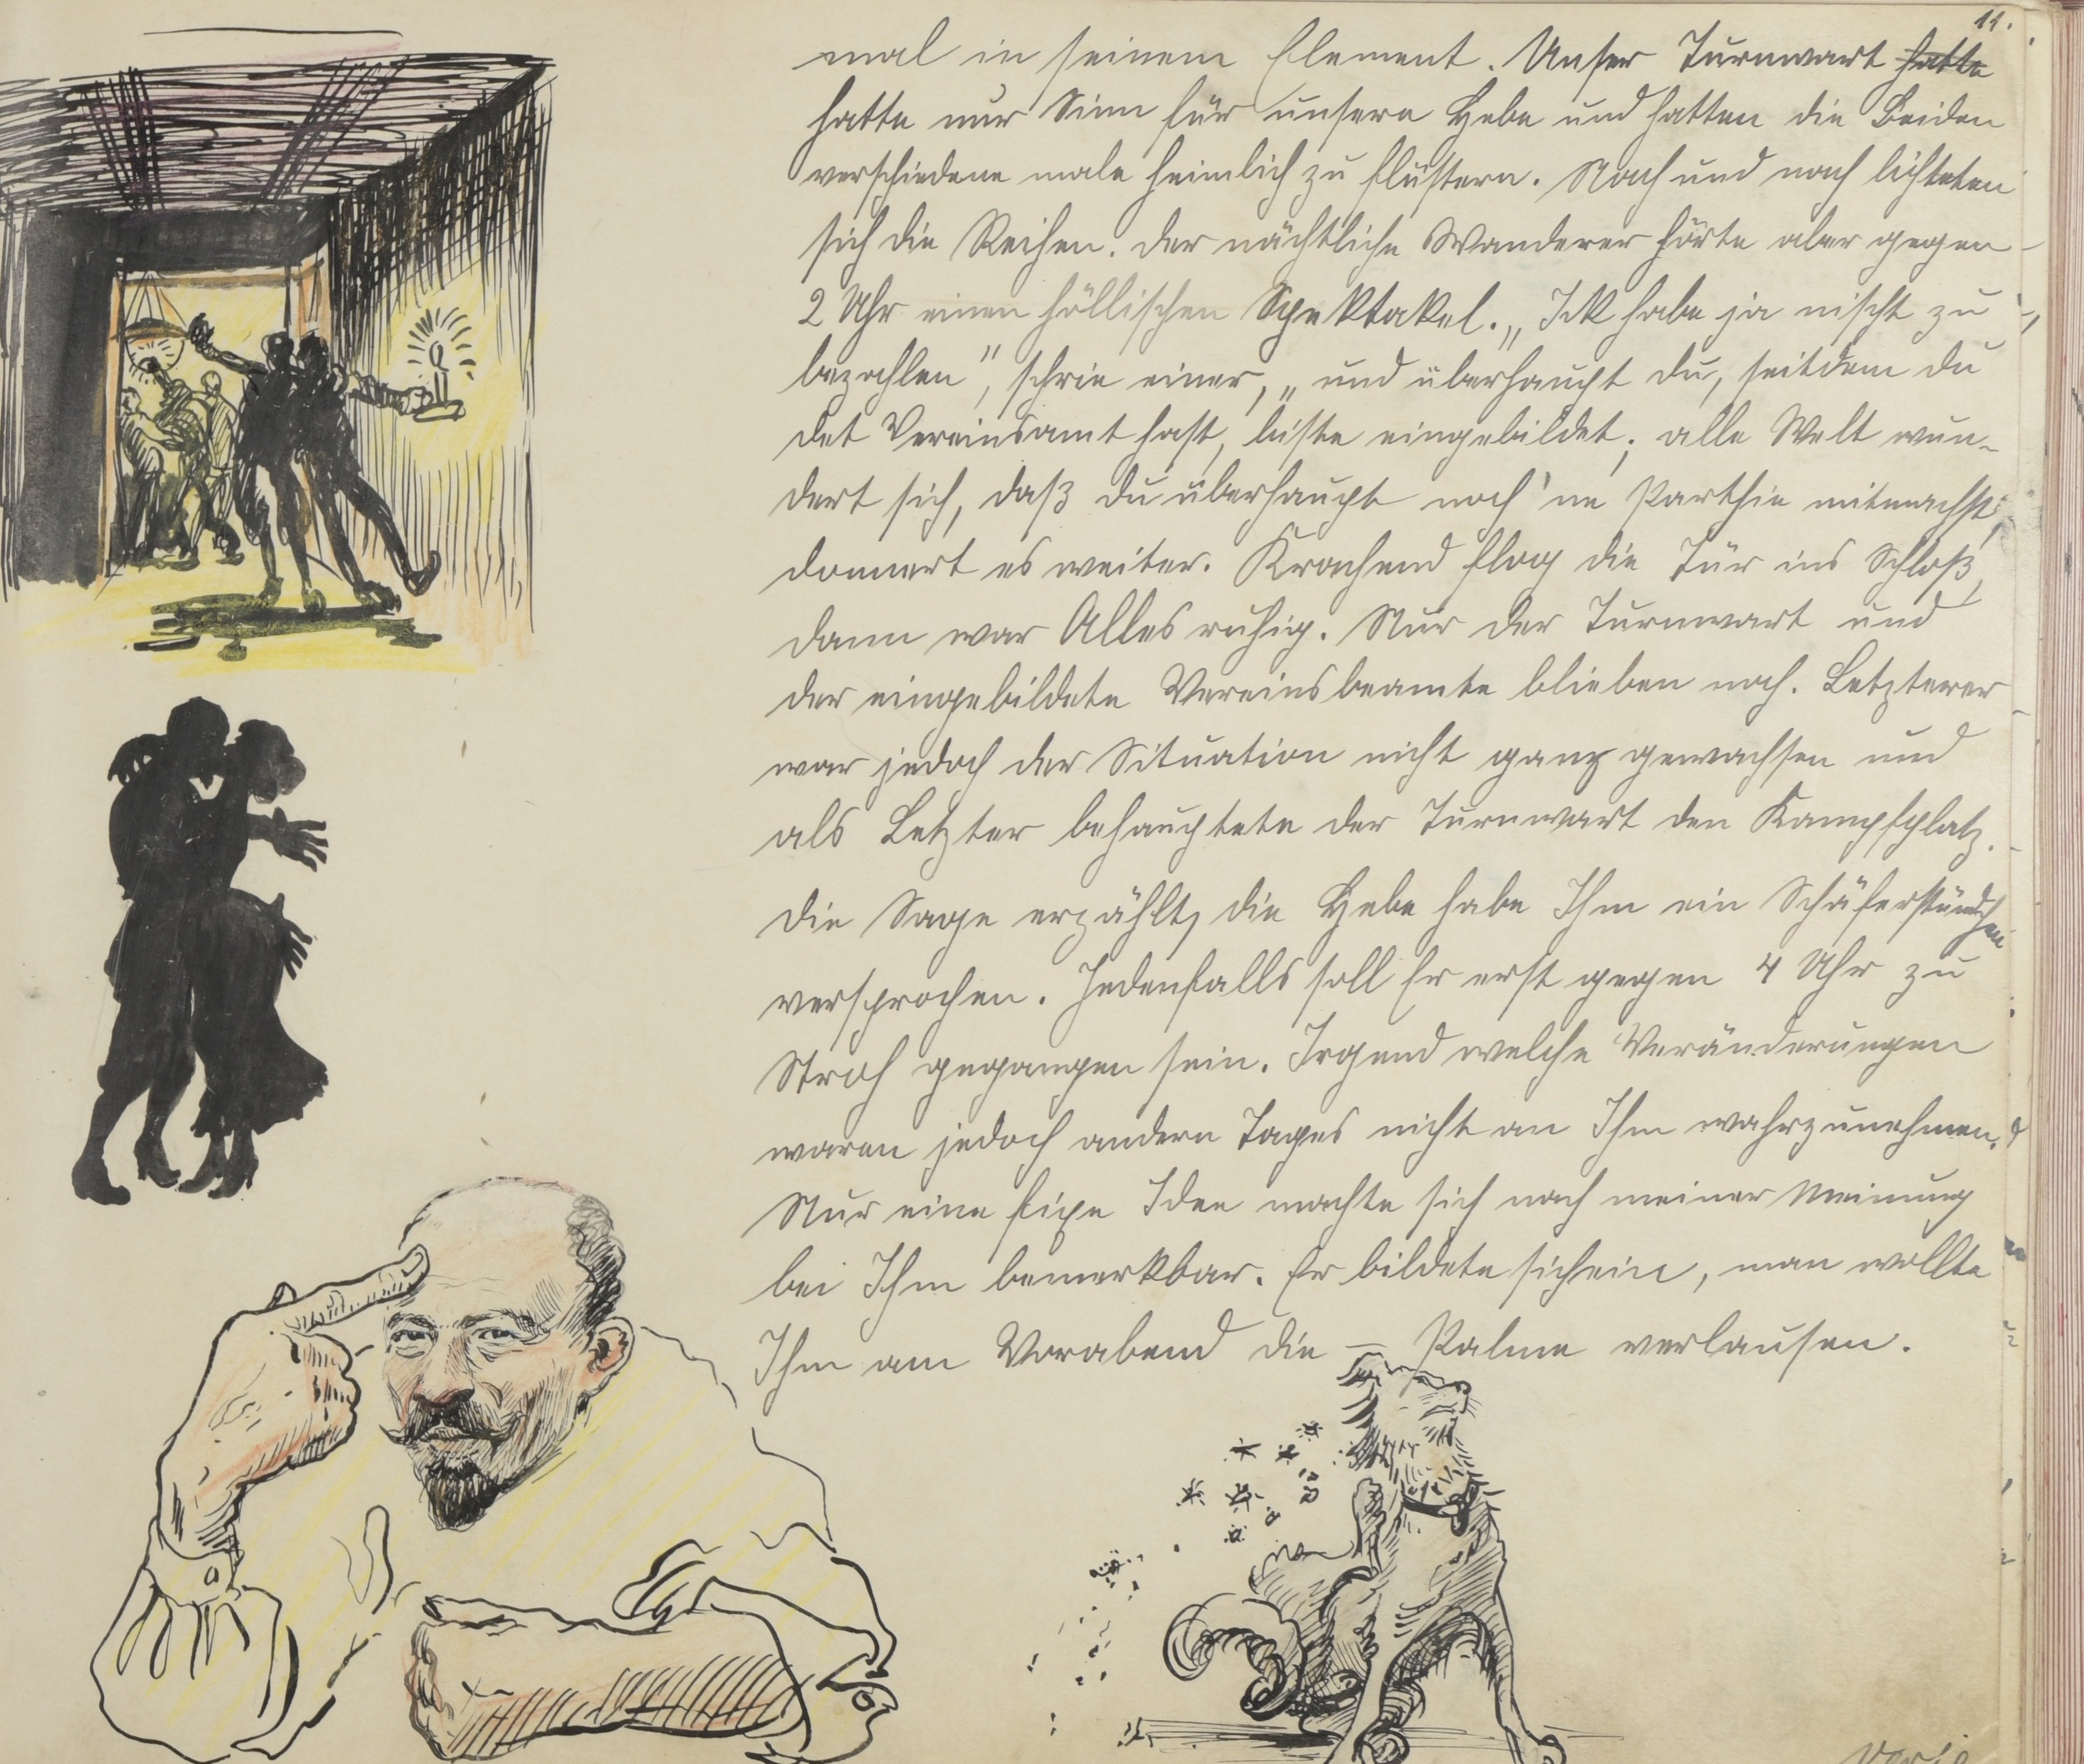 11.
mal in seinem Element. Unser Turnwart hatte
hatte nur Sinn für unsere Hebe und hatten die Beiden
verschiedene male heimlich zu flüstern. Nach und nach lichteten
sich die Reihen. Der nächtliche Wanderer hörte aber gegen
2 Uhr einen höllischen Spektakel. „Ick habe ja nischt zu
bezahlen", schrie einer, „und überhaupt du, seitdem du
det Vereinsamt hast, biste eingebildet; alle Welt wun-
dert sich, daß du überhaupt noch 'ne Parthie mitmachst,
donnert es weiter. Krachend flog die Tür ins Schloß,
dann war Alles ruhig. Nur der Turnwart und
der eingebildete Vereinsbeamte blieben noch. Letzterer
war jedoch der Situation nicht ganz gewachsen und
als Letzter behauptete der Turnwart den Kampfplatz.
Die Sage erzählt, die Hebe habe Ihm ein Schäferstündchen
versprochen. Jedenfalls soll Er erst gegen 4 Uhr zu
Stroh gegangen sein. Irgend welche Veränderungen
waren jedoch andern Tages nicht an Ihm wahrzunehmen.
Nur eine fixe Idee machte sich nach meiner Meinung
bei Ihm bemerkbar. Er bildete sich ein, man wollte
Ihm am Vorabend die – Palme verlausen.